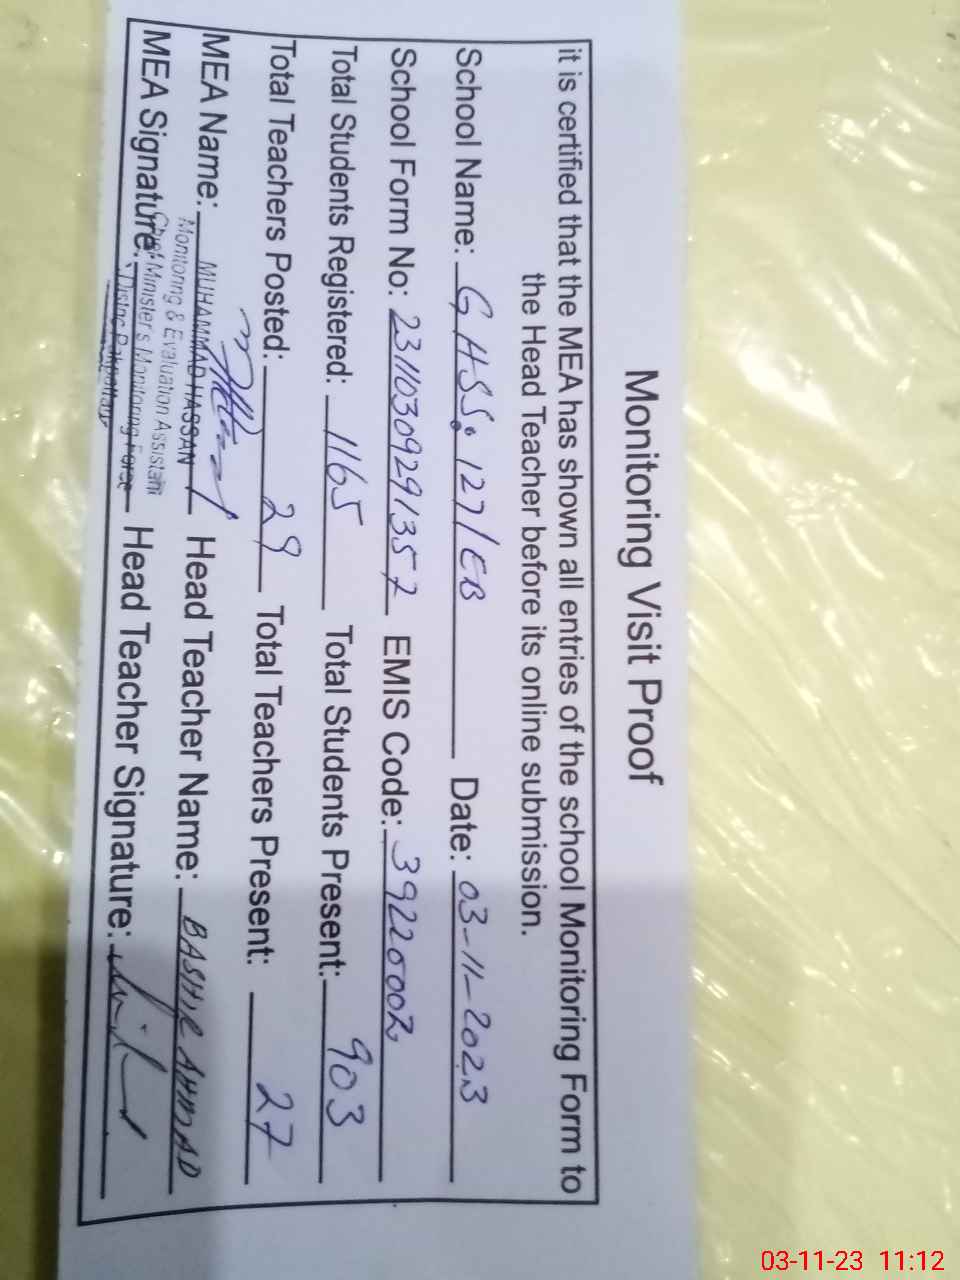 Monitoring Visit Proof
it is certified that the MEA has shown all entries of the school Monitoring Form to
the Head Teacher before its online submission.
School Name: GHSS. 127/EB Date: 03-11-2023
School Form No: 23110309291357 EMIS Code: 39220002
Total Students Registered: 1165 Total Students Present: 903
Total Teachers Posted: 29 Total Teachers Present: 27
MEA Name: MUHAMMAD HASSAN Head Teacher Name: BASHIR AHMAD
Monitoring & Evaluation Assistant
Chief Minister's Monitoring Force
MEA Signature: Distric Pakpattan Head Teacher Signature:
03-11-23 11:12